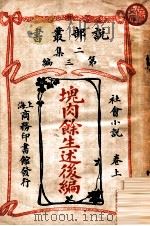 說部叢書
二集
第三編
社會小說
卷上
塊肉餘生述後編
上海商務印書館發行
http://www.ertongbook.com